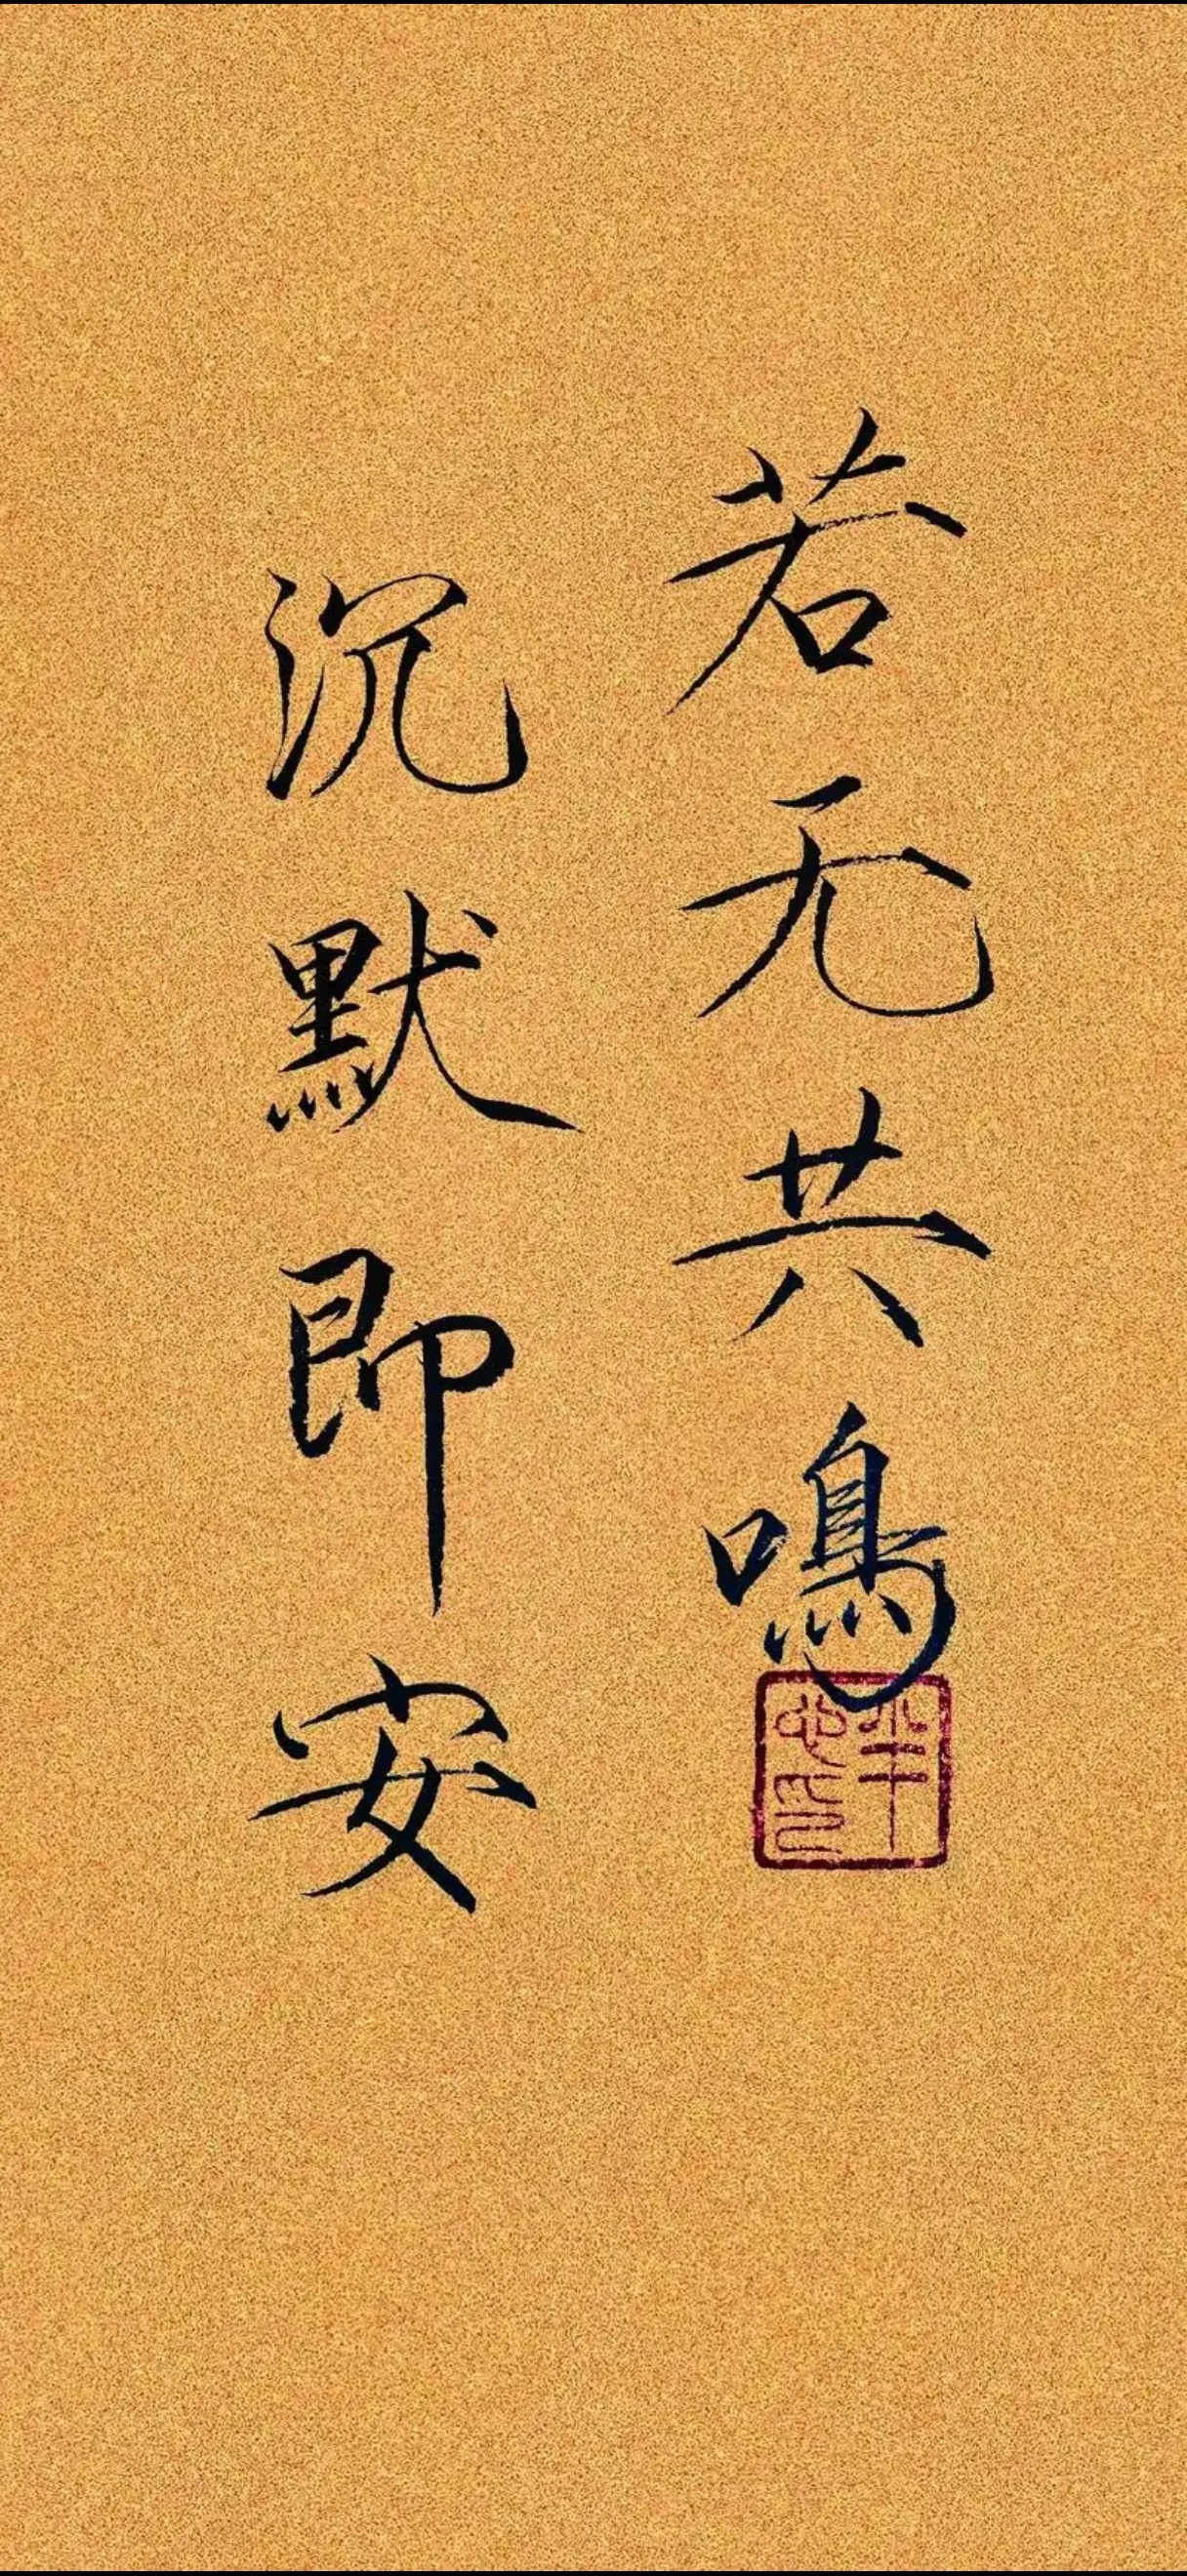 若无共鳴
沉默即安